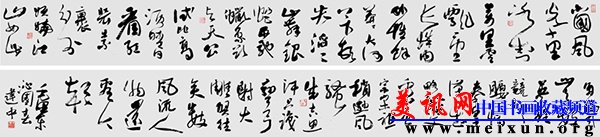 北国风
光千里
冰封
万里雪
飘望
长城内
外惟余
莽莽大河
上下顿
失滔滔
山舞银
蛇原驰
蜡象欲
与天公
试比高
须晴日
看红
装素
裹分外
妖娆江
山如此
无数
英雄
竞
宋祖
稍
逊风
骚
成吉思
汗只识
弯弓
射大
雕俱往
矣数
风流人
物还
看今
朝
毛泽东
沁园春
建中
美讯网
中国书画收藏频道
www.meixun.org